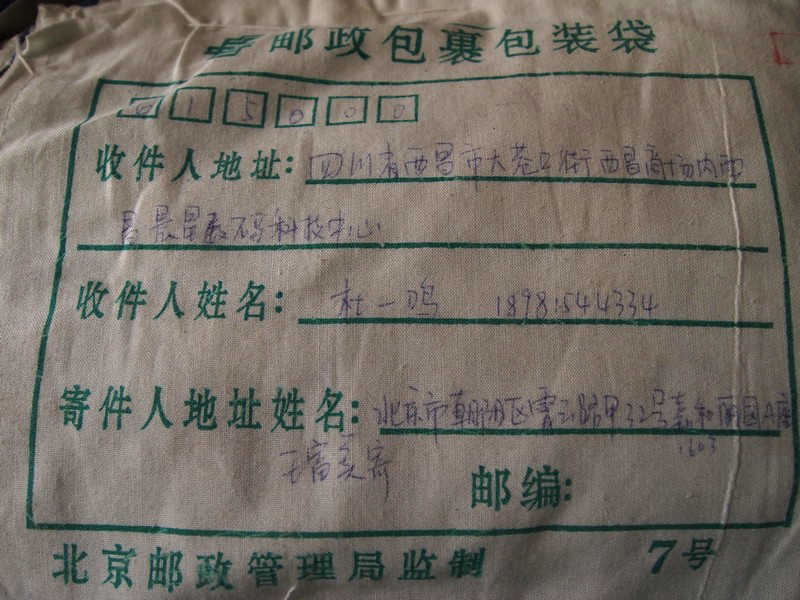 邮政包裹包装袋
615000
收件人地址: 四川省西昌市大巷口街西昌商场内西
昌晨星数码科技中心
收件人姓名: 杜一鸣 18981544334
寄件人地址姓名: 北京市朝阳区霄云路甲32号嘉和丽园A座
1603
王富 寄
邮编:
北京邮政管理局监制 7号